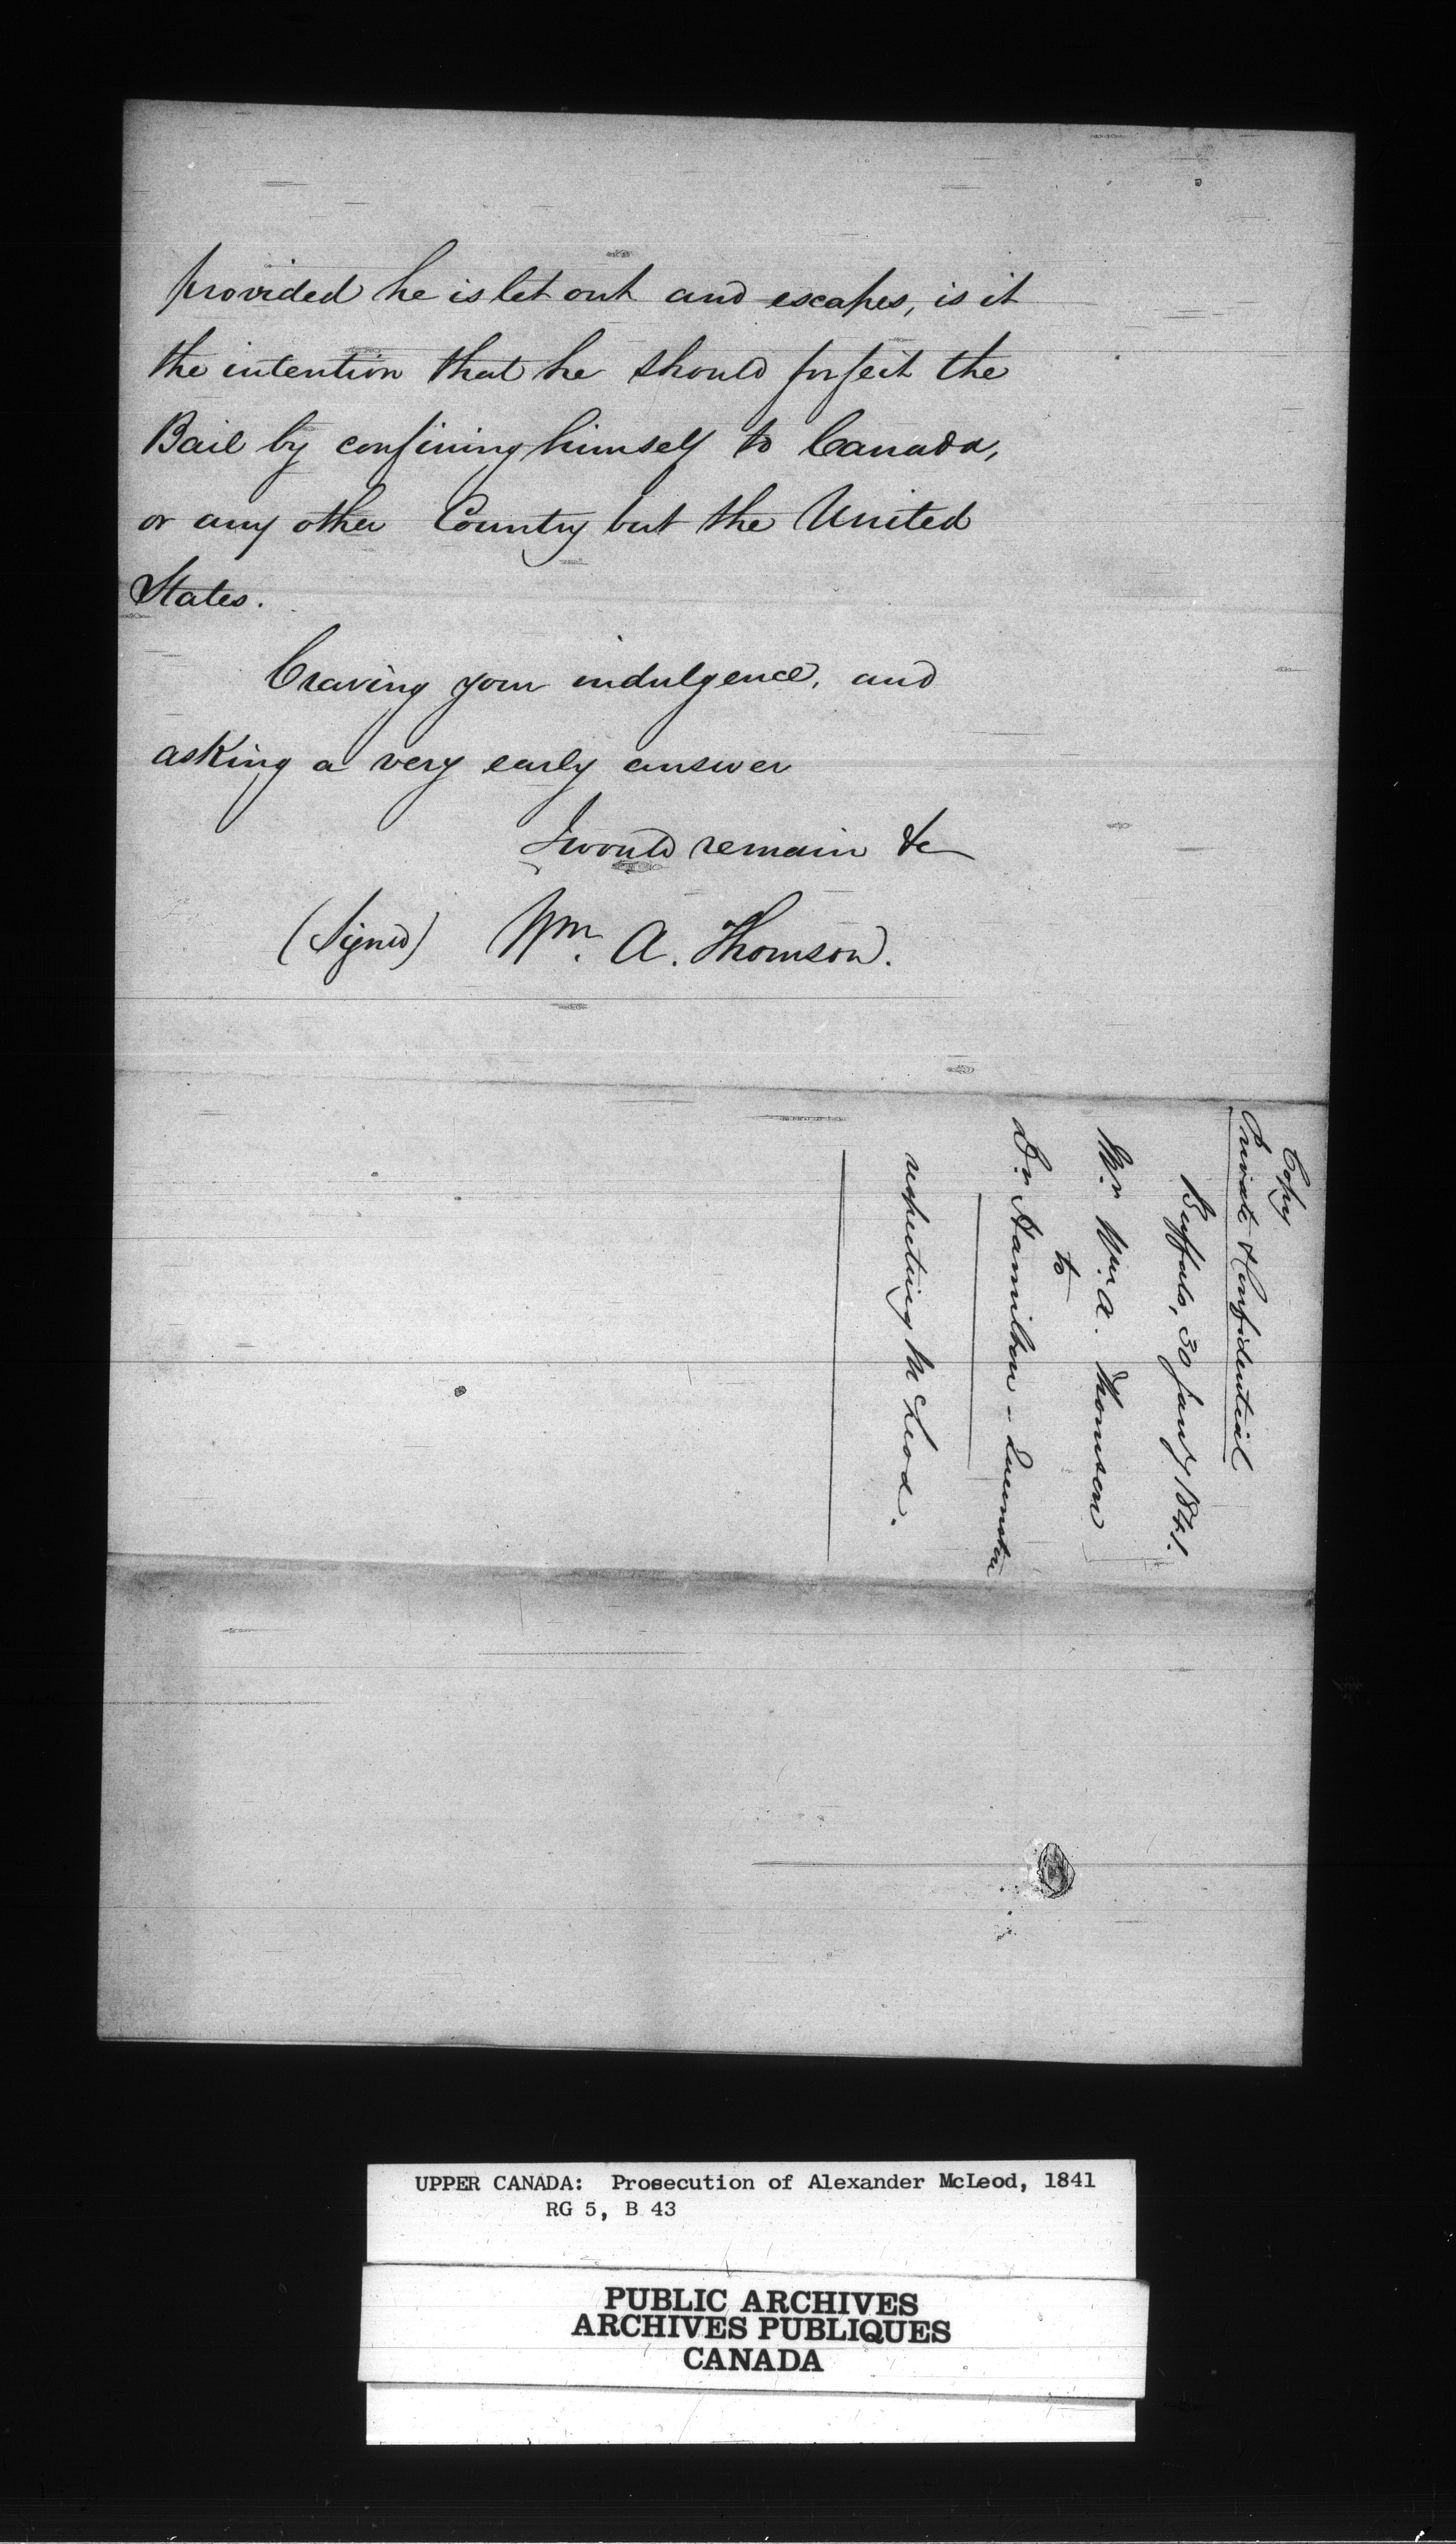 provided he is let out and escapes, is it
the intention that he should forfeit the
Bail by confining himself to Canada,
or any other Country but the United
States.
Craving your indulgence, and
asking a very early answer
I would remain &c
(Signed) Wm. A. Thomson.
Copy
Private & Confidential
Buffalo, 30 Jany 1841.
Mr Wm. A. Thomson
to
Dr Hamilton - Queenston
respecting McLeod.
UPPER CANADA: Prosecution of Alexander McLeod, 1841
RG 5, B 43
PUBLIC ARCHIVES
ARCHIVES PUBLIQUES
CANADA